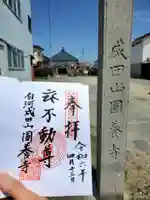 成田山圓養寺
奉拝
令和六年
不動尊
白河成田山圓養寺